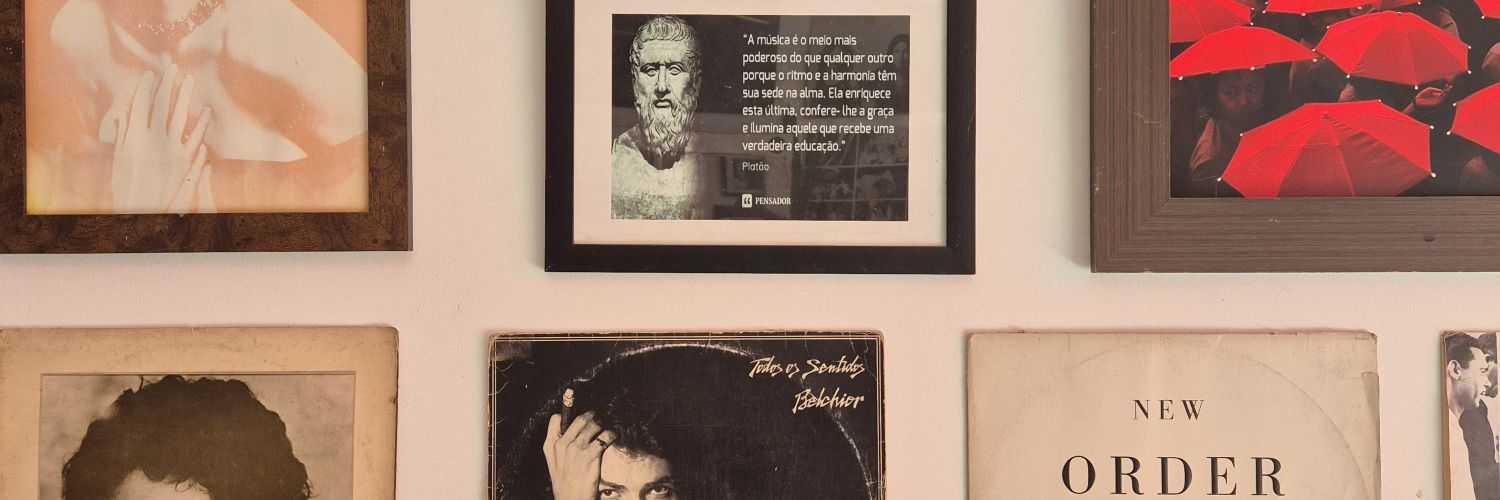 "A música é o meio mais
poderoso do que qualquer outro
porque o ritmo e a harmonia têm
sua sede na alma. Ela enriquece
esta última, confere- lhe a graça
e ilumina aquele que recebe uma
verdadeira educação."
Platão
PENSADOR
Todos os Sentidos
Belchior
NEW
ORDER